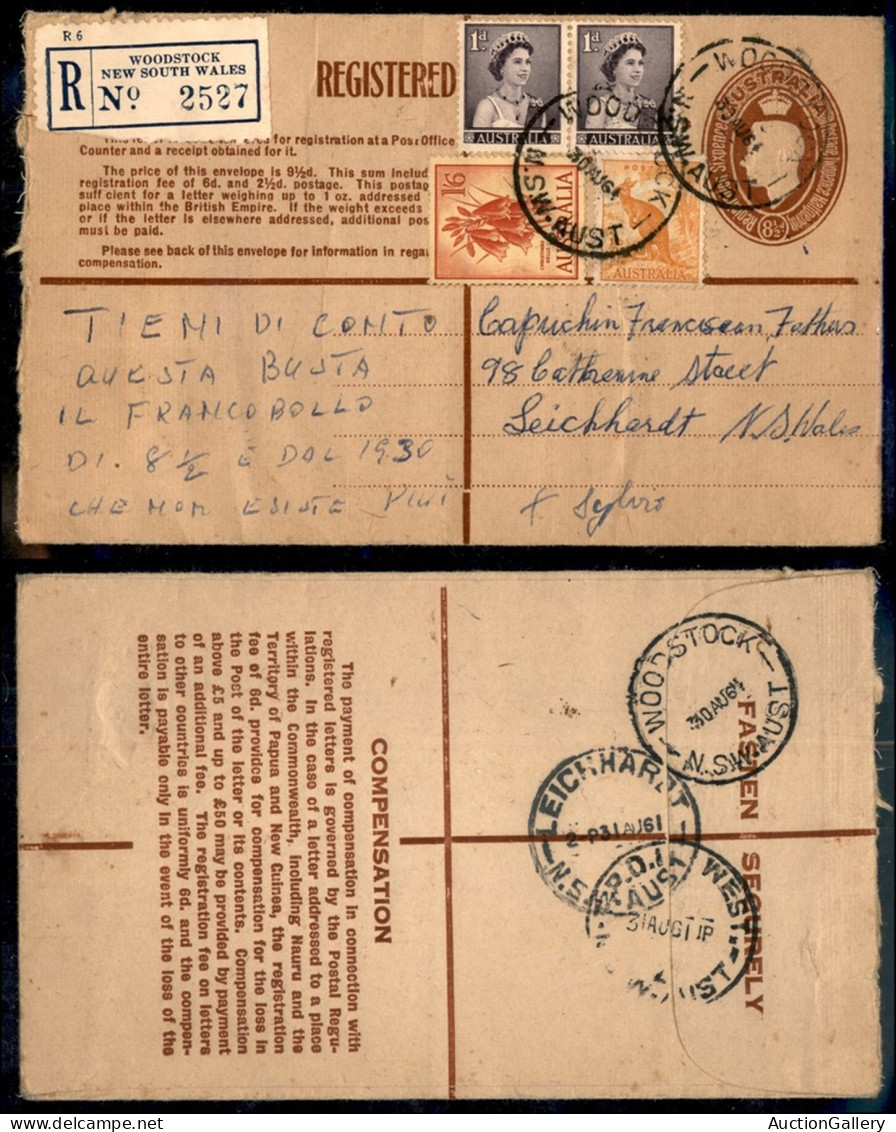 R 6
WOODSTOCK
NEW SOUTH WALES
R Nº 2527
REGISTERED
1d.
AUSTRALIA
1d.
AUSTRALIA
1/6
AUSTRALIA
AUSTRALIA
AUSTRALIA
(8½)
WOODSTOCK
N.S.W. AUST
30AU61
for registration at a Post Office
Counter and a receipt obtained for it.
The price of this envelope is 9½d. This sum
registration fee of 6d. and 2½d. postage. This
sufficient for a letter weighing up to 1 oz. addressed
place within the British Empire. If the weight exceeds
or if the letter is elsewhere addressed, additional
must be paid.
Please see back of this envelope for information in
compensation.
TIENI DI CONTO
QUESTA BUSTA
IL FRANCOBOLLO
DI. 8½ E DAL 1930
CHE NON ESISTE PIUI
Capuchin Franciscan Fathers
98 Catherine Street
Leichhardt N.S.Wales
F Sylvio
COMPENSATION
The payment of compensation in connection with
registered letters is governed by the Postal Regu-
lations. In the case of a letter addressed to a place
within the Commonwealth, including Nauru and the
Territory of Papua and New Guinea, the registration
fee of 6d. provides for compensation for the loss in
the Post of the letter or its contents. Compensation
above £5 and up to £50 may be provided by payment
of an additional fee. The registration fee on letters
to other countries is uniformly 6d. and the compen-
sation is payable only in the event of the loss of the
entire letter.
FASTEN SECURELY
WOODSTOCK
30AU61
N.S.W. AUST
LEICHHARDT
2-P31AU61
N.S.
AUST
WEST.
31AU61
AuctionGallery